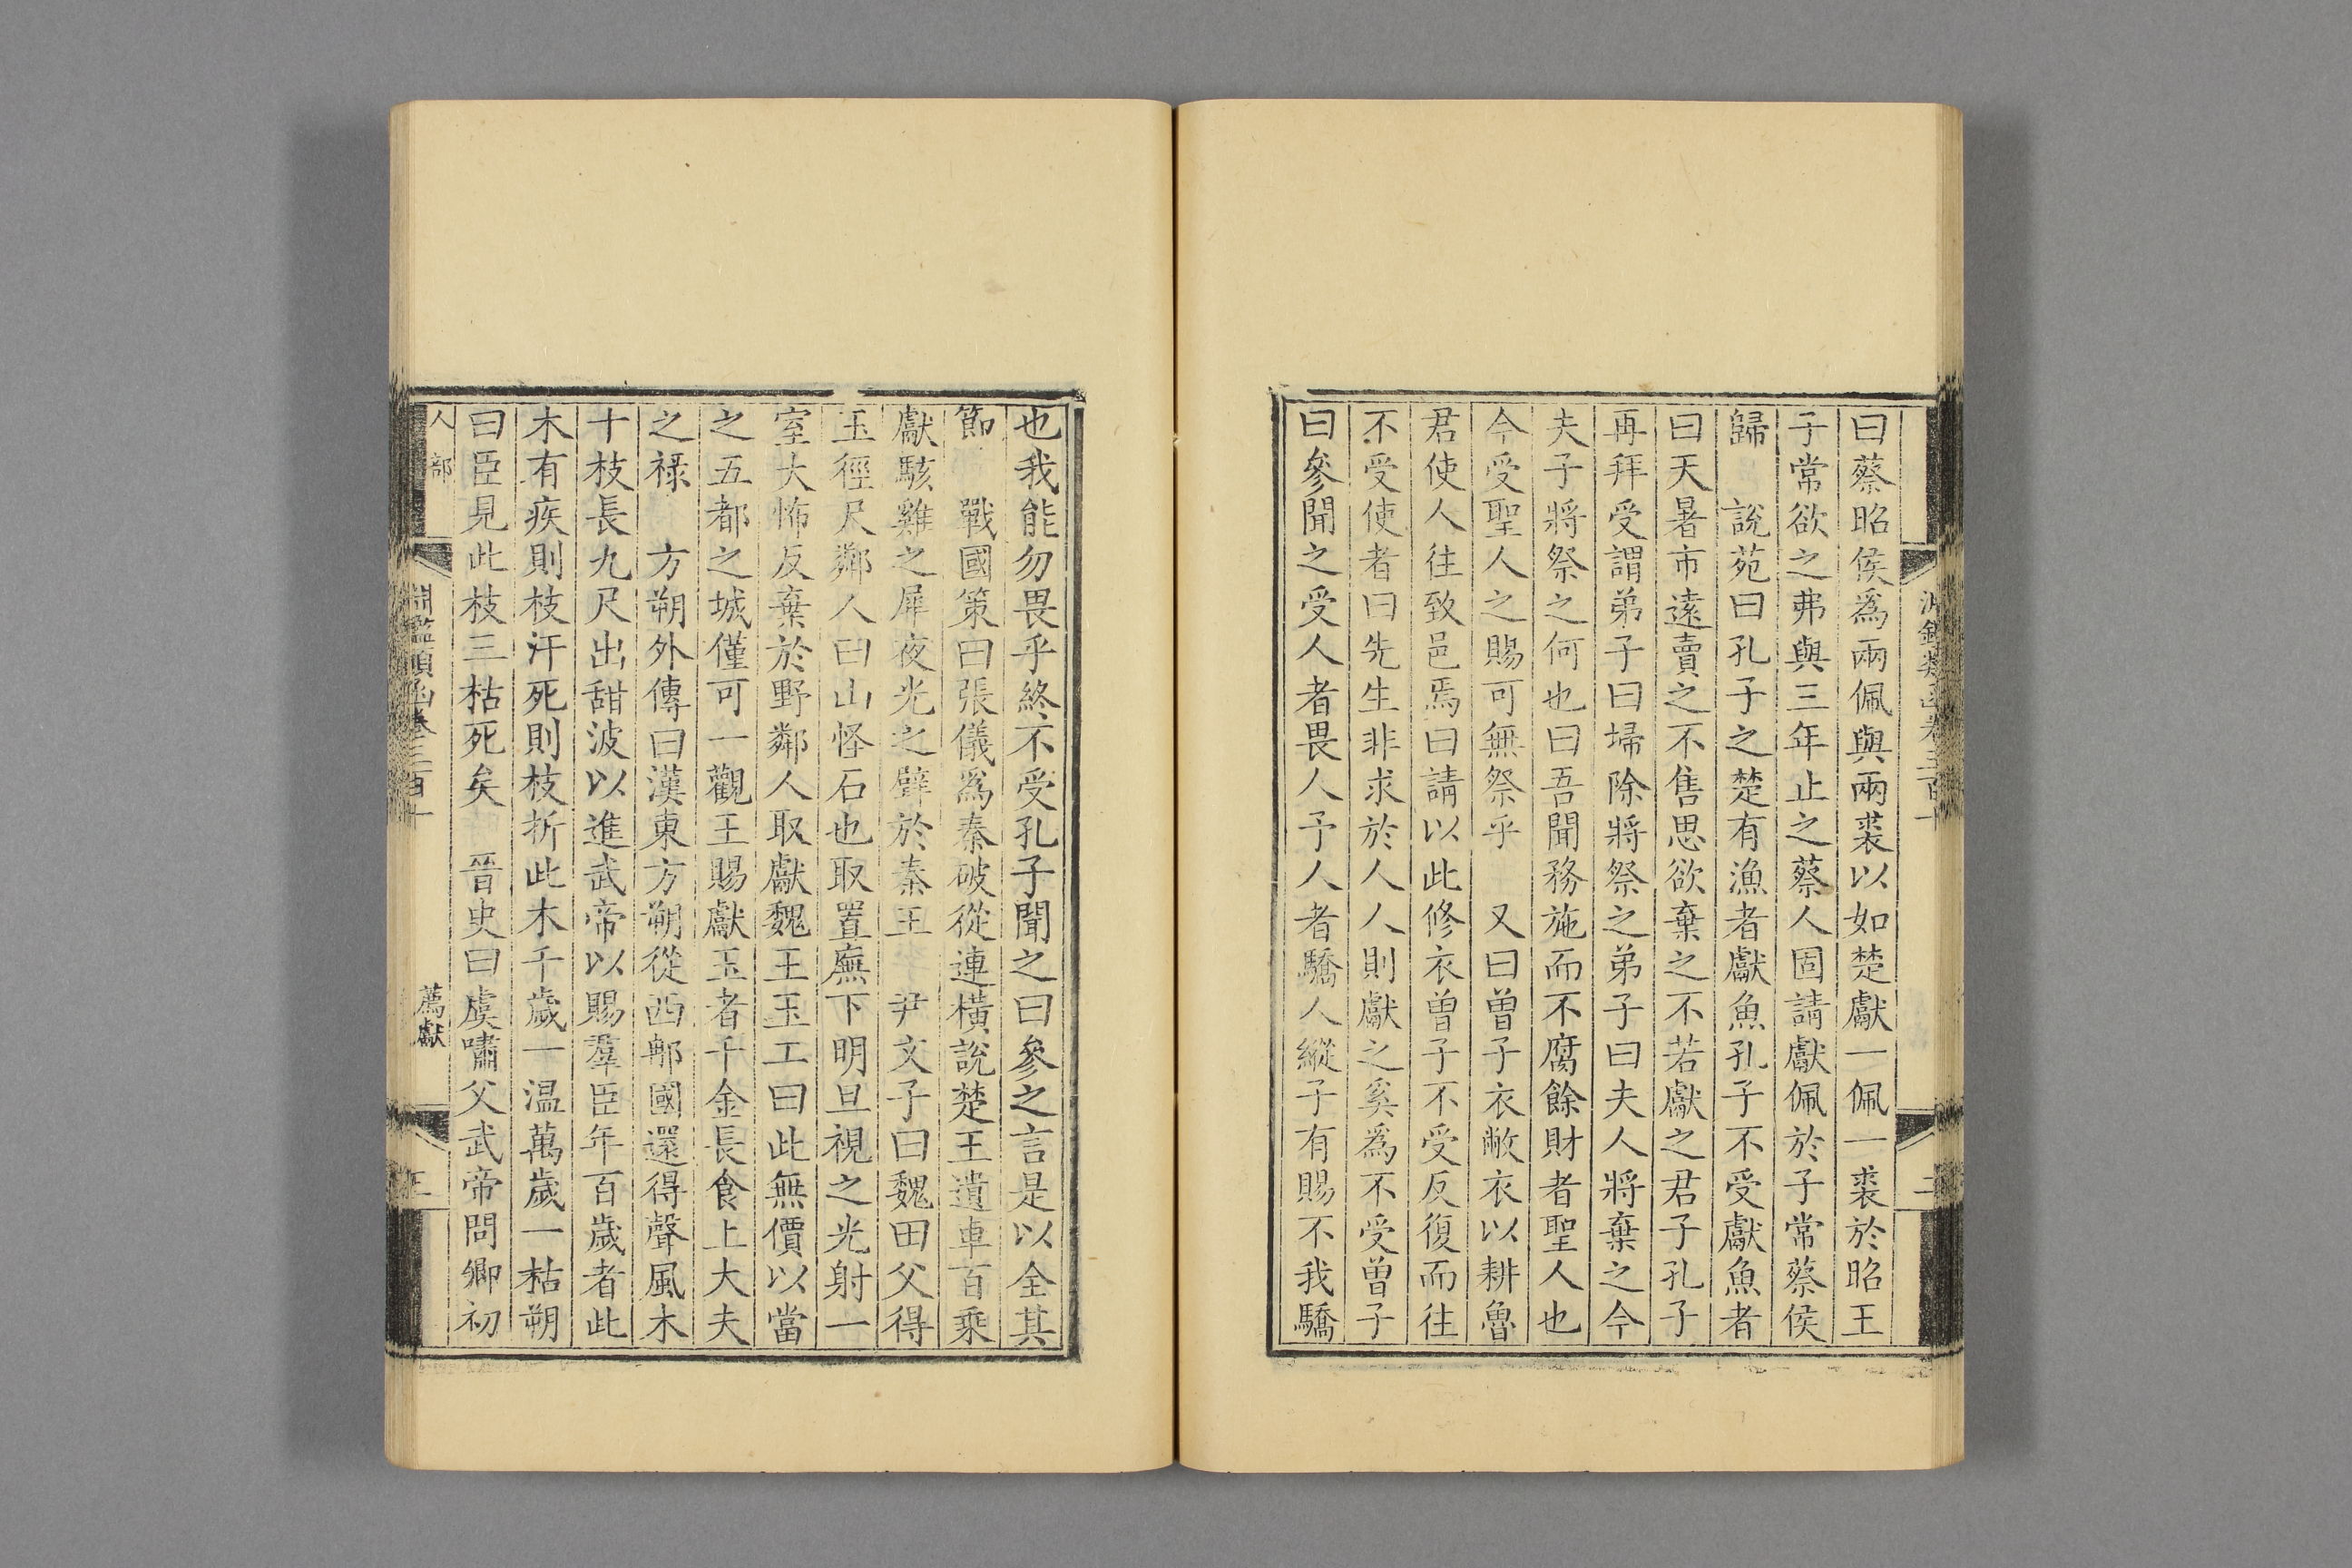 曰蔡昭侯爲兩佩與兩裘以如楚獻一佩一裘於昭王
子常欲之弗與三年止之蔡人固請獻佩於子常蔡侯
歸　說苑曰孔子之楚有漁者獻魚孔子不受獻魚者
曰天暑市遠賣之不售思欲棄之不若獻之君子孔子
再拜受謂弟子曰埽除將祭之弟子曰夫人將棄之今
夫子將祭之何也曰吾聞務施而不腐餘財者聖人也
今受聖人之賜可無祭乎　又曰曾子衣敝衣以耕魯
君使人往致邑焉曰請以此修衣曾子不受反復而往
不受使者曰先生非求於人人則獻之奚爲不受曾子
曰參聞之受人者畏人予人者驕人縱子有賜不我驕
也我能勿畏乎終不受孔子聞之曰參之言是以全其
節　戰國策曰張儀爲秦破從連橫說楚王遺車百乘
獻駭雞之犀夜光之璧於秦王　尹文子曰魏田父得
玉徑尺鄰人曰山怪石也取置廡下明旦視之光射一
室大怖反棄於野鄰人取獻魏王玉工曰此無價以當
之五都之城僅可一觀王賜獻玉者千金長食上大夫
之祿　方朔外傳曰漢東方朔從西邮國還得聲風木
十枝長九尺出甜波以進武帝以賜羣臣年百歲者此
木有疾則枝汗死則枝折此木千歲一溫萬歲一枯朔
曰臣見此枝三枯死矣　晉史曰虞嘯父武帝問卿初
人部
淵鑑類函卷三百十
薦獻
三